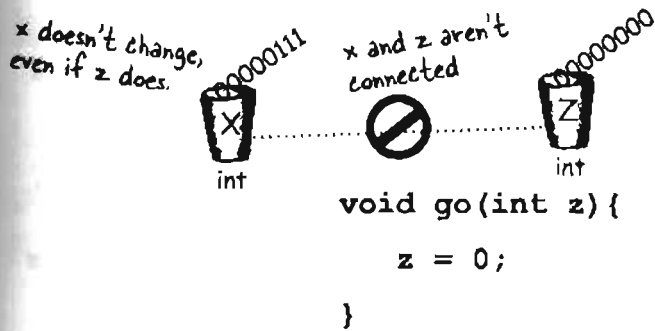 x doesn't change,
even if z does.
00000111
X
int
x and z aren't
connected
00000000
Z
int
void go(int z){
z = 0;
}